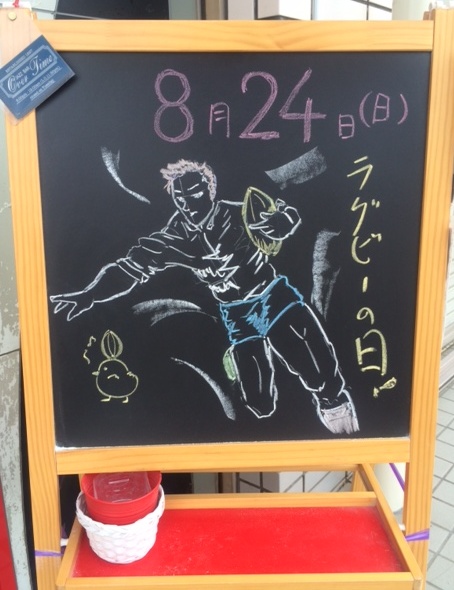 8月24日(日)
ラグビーの日!
Over Time